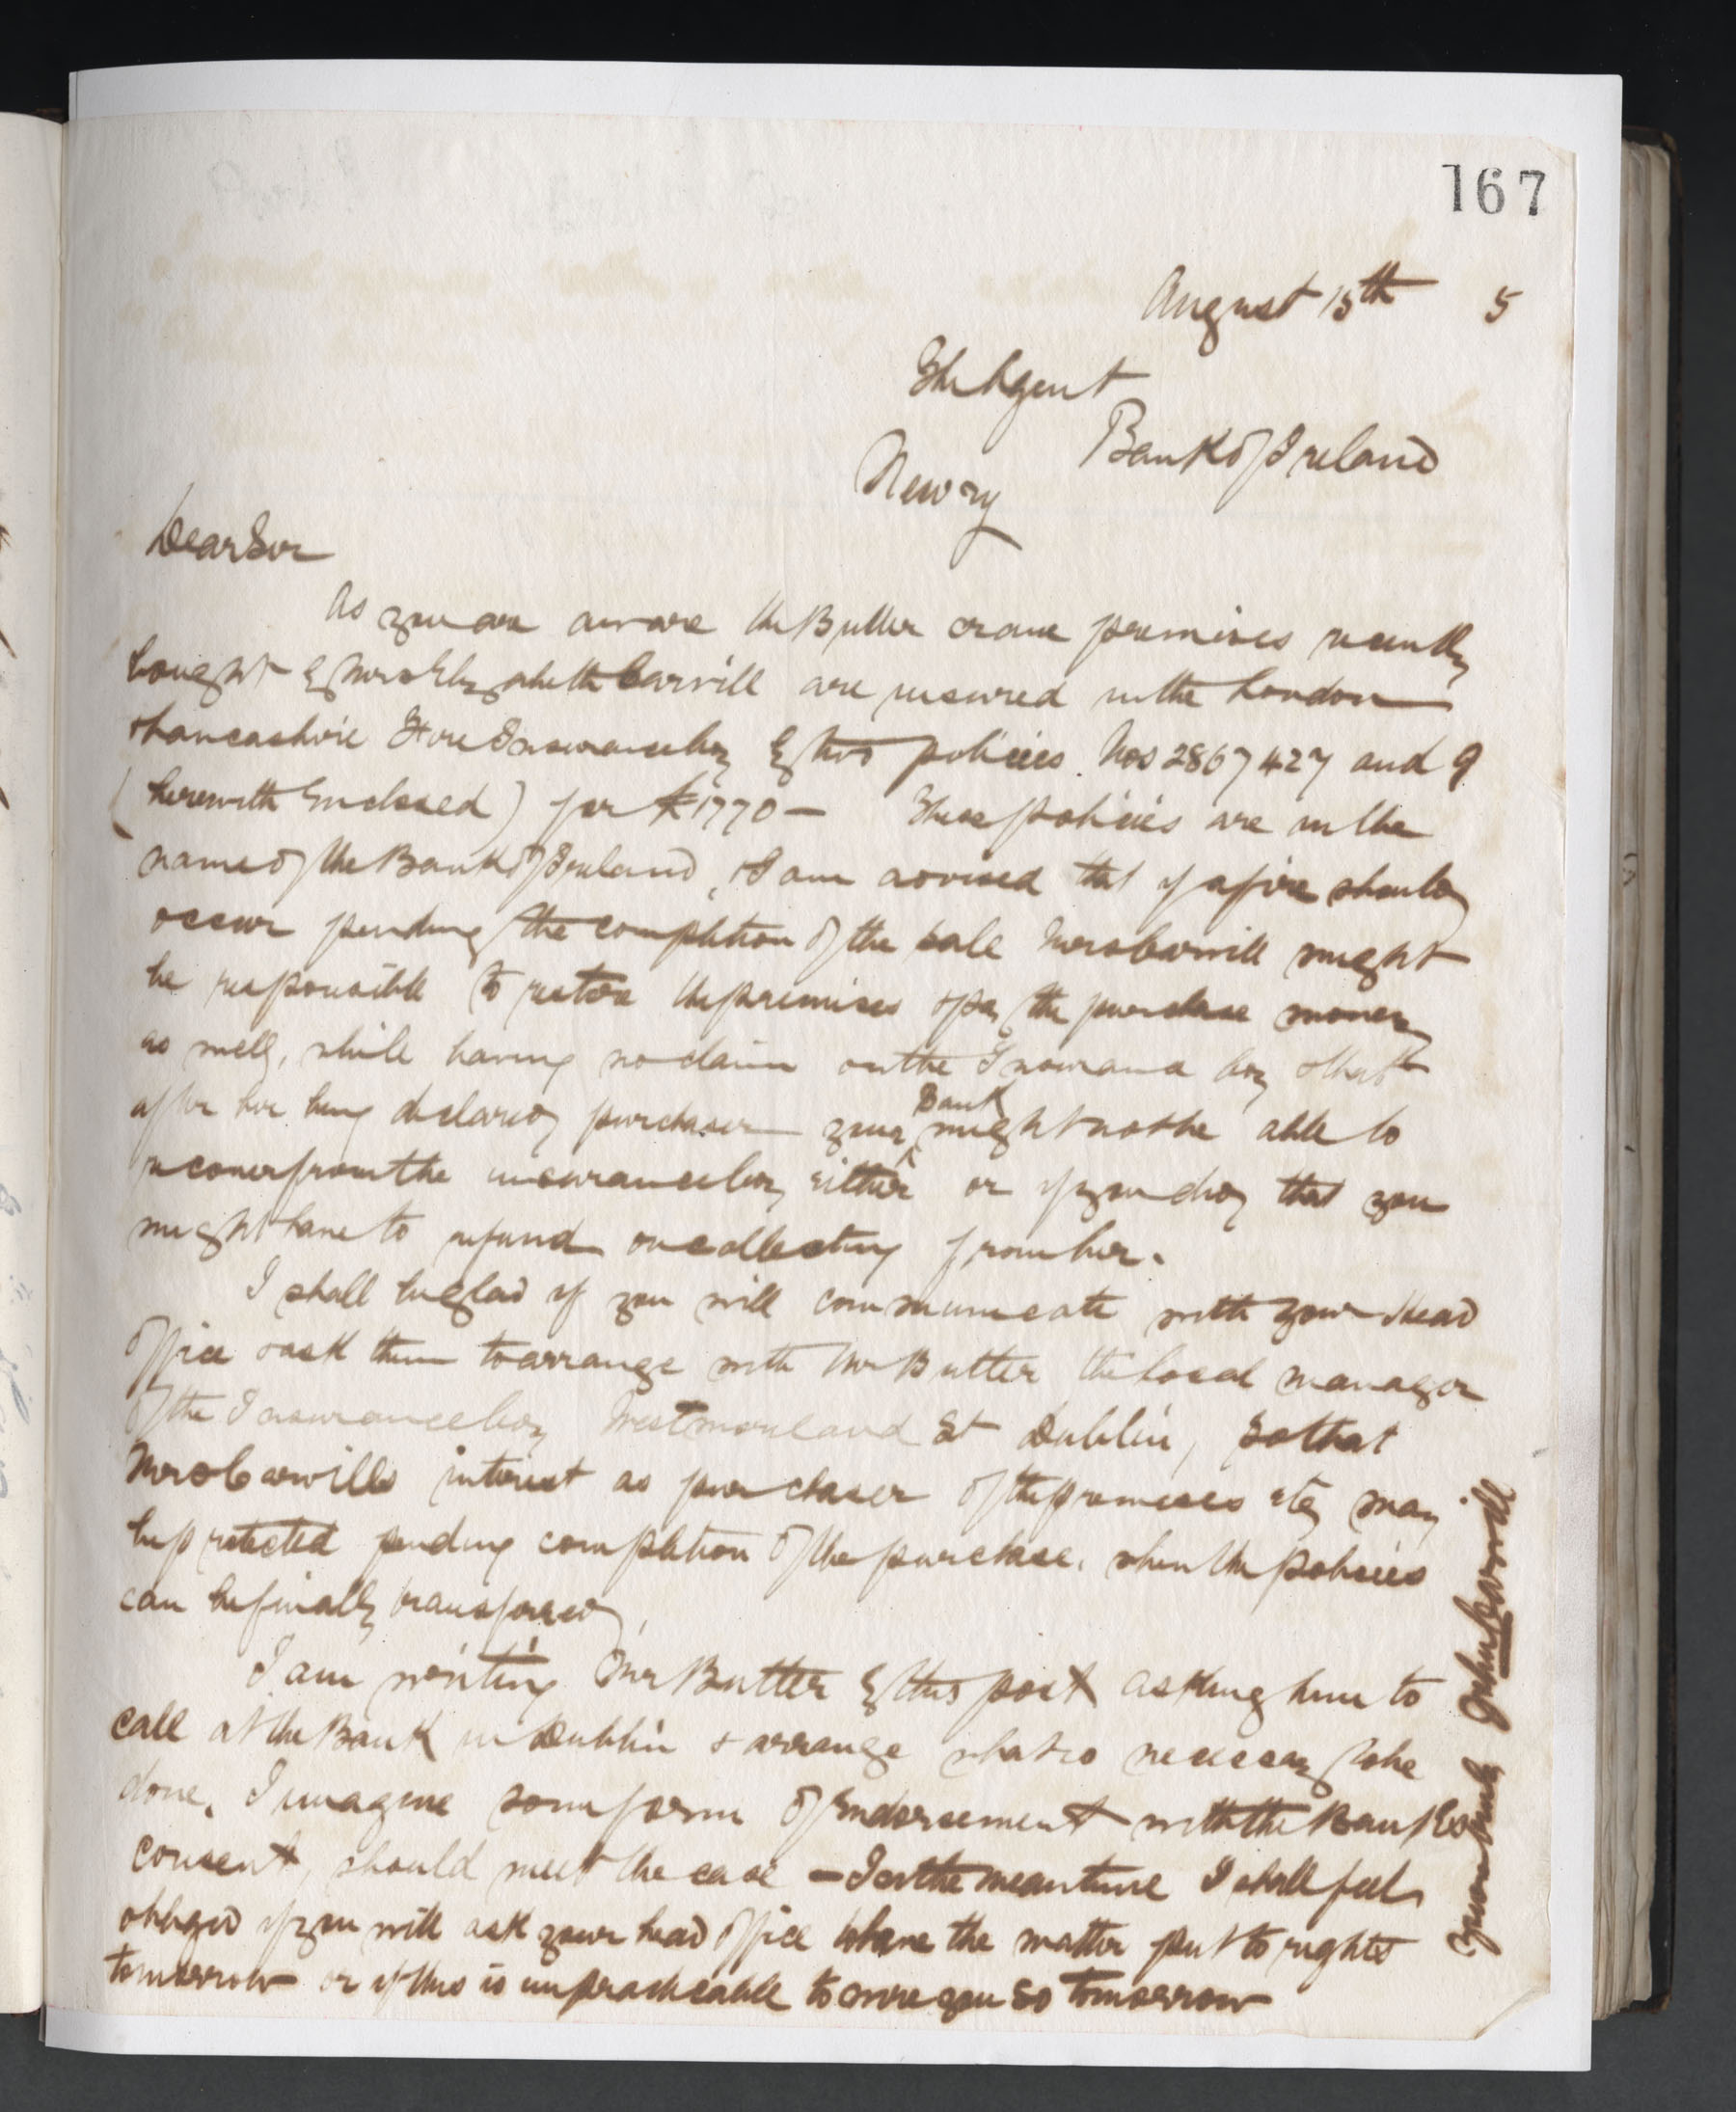 167
August 15th 5
The Agent
Bank of Ireland
Newry
Dear Sir
As you are aware the Butter crane premises recently
bought by Mrs Elizabeth Carvill are insured in the London
& Lancashire Fire Insurance Coy by two policies. Nos 2867427 and 9
(herewith Enclosed) for £1770 — These policies are in the
name of the Bank of Ireland, & I am advised that if a fire should
occur pending the completion of the sale Mrs Carvill might
be responsible to restore the premises & pay the purchase money
as well, while having no claim on the Insurance Coy & that
after her being declared purchaser your Bank might not be able to
recover from the insurance Coy either or if you did that you
might have to refund on collecting from her.
I shall be glad if you will communicate with your Head
Office & ask them to arrange with Mr Butter the local manager
of the Insurance Coy Westmoreland St Dublin, so that
Mrs Carvills interest as purchaser of the premises etc may
be protected pending completion of the purchase. when the policies
can be finally transferred.
I am writing Mr Butter by this post asking him to
call at the Bank in Dublin & arrange what is necessary to be
done. I imagine some form of Endorsement with the Banks
consent, should meet the case — In the meantime I shall feel
obliged if you will ask your head office to have the matter put to rights
tomorrow or if this is impracticable to wire you so tomorrow
Yours truly John Carvill